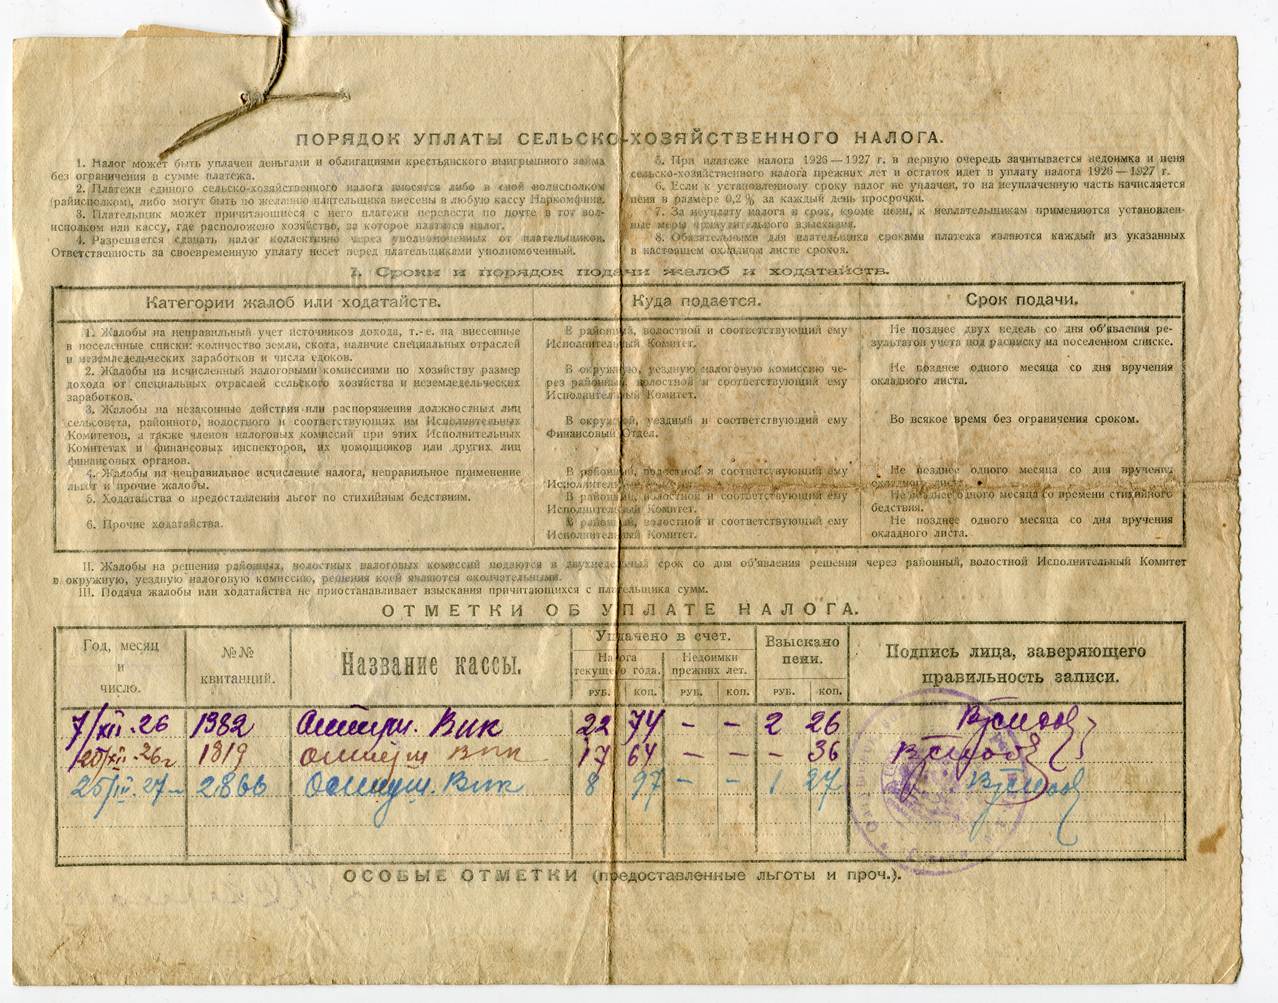 ПОРЯДОК УПЛАТЫ СЕЛЬСКО-ХОЗЯЙСТВЕННОГО НАЛОГА.
1. Налог может быть уплачен деньгами и облигациями крестьянского выигрышного займа
без ограничения в сумме платежа.
2. Платежи единого сельско-хозяйственного налога вносятся либо в свой волисполком
(райисполком), либо могут быть по желанию плательщика внесены в любую кассу Наркомфина.
3. Плательщик может причитающиеся с него платежи перевести по почте в тот вол-
исполком или кассу, где расположено хозяйство, за которое платится налог.
4. Разрешается сдавать налог коллективно через уполномоченных от плательщиков.
Ответственность за своевременную уплату несет перед плательщиками уполномоченный.
5. При платеже налога 1926—1927 г. в первую очередь зачитывается недоимка и пеня
сельско-хозяйственного налога прежних лет и остаток идет в уплату налога 1926—1927 г.
6. Если к установленному сроку налог не уплачен, то на неуплаченную часть начисляется
пеня в размере 0,2% за каждый день просрочки.
7. За неуплату налога в срок, кроме пени, к неплательщикам применяются установлен-
ные меры принудительного взыскания.
8. Обязательными для плательщика сроками платежа являются каждый из указанных
в настоящем окладном листе сроков.
I. Сроки и порядок подачи жалоб и ходатайств.
Категории жалоб или ходатайств.
Куда подается.
Срок подачи.
1. Жалобы на неправильный учет источников дохода, т.-е. на внесенные
в поселенные списки: количество земли, скота, наличие специальных отраслей
и неземледельческих заработков и числа едоков.
В районный, волостной и соответствующий ему
Исполнительный Комитет.
Не позднее двух недель со дня об'явления ре-
зультатов учета под расписку на поселенном списке.
2. Жалобы на исчисленный налоговыми комиссиями по хозяйству размер
дохода от специальных отраслей сельского хозяйства и неземледельческих
заработков.
В окружную, уездную налоговую комиссию че-
рез районный, волостной и соответствующий ему
Исполнительный Комитет.
Не позднее одного месяца со дня вручения
окладного листа.
3. Жалобы на незаконные действия или распоряжения должностных лиц
сельсовета, районного, волостного и соответствующих им Исполнительных
Комитетов, а также членов налоговых комиссий при этих Исполнительных
Комитетах и финансовых инспекторов, их помощников или других лиц
финансовых органов.
В окружной, уездный и соответствующий ему
Финансовый Отдел.
Во всякое время без ограничения сроком.
4. Жалобы на неправильное исчисление налога, неправильное применение
льгот и прочие жалобы.
В районный, волостной и соответствующий ему
Исполнительный Комитет.
Не позднее одного месяца со дня вручения
окладного листа.
5. Ходатайства о предоставления льгот по стихийным бедствиям.
В районный, волостной и соответствующий ему
Исполнительный Комитет.
Не позднее одного месяца со времени стихийного
бедствия.
6. Прочие ходатайства.
В районный, волостной и соответствующий ему
Исполнительный Комитет.
Не позднее одного месяца со дня вручения
окладного листа.
II. Жалобы на решения районных, волостных налоговых комиссий подаются в двухнедельный срок со дня об'явления решения через районный, волостной Исполнительный Комитет
в окружную, уездную налоговую комиссию, решения коей являются окончательными.
III. Подача жалобы или ходатайства не приостанавливает взыскания причитающихся с плательщика сумм.
ОТМЕТКИ ОБ УПЛАТЕ НАЛОГА.
Год, месяц
и
число.
№№
квитанций.
Название кассы.
Уплачено в счет.
Налога
текущего года.
Недоимки
прежних лет.
РУБ. КОП. РУБ. КОП.
Взыскано
пени.
РУБ. КОП.
Подпись лица, заверяющего
правильность записи.
7/XII-26 1382 Вик 22 74 – – 2 26
20/XII-26г. 1819 Вик 17 64 – – – 36
25/III-27 2866 Вик 8 97 – – 1 27
ОСОБЫЕ ОТМЕТКИ (предоставленные льготы и проч.).